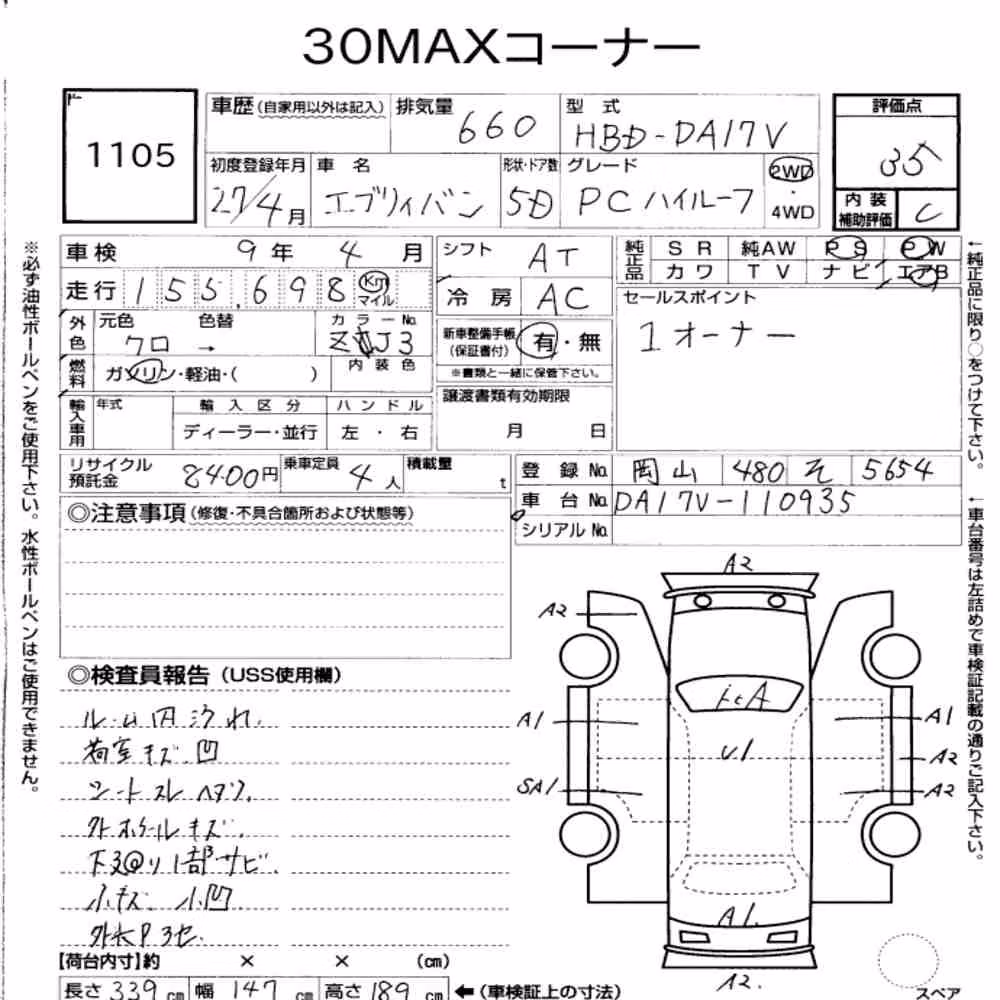 30MAXコーナー
1105
車歴(自家用以外は記入)
排気量 660
型式 HBD-DA17V
評価点 35
初度登録年月 27/4月
車名 エブリイバン
形状・ドア数 5D
グレード PC ハイルーフ
2WD・4WD
内装補助評価 C
車検 9年 4月
シフト AT
純正品 SR 純AW PS PW
カワ TV ナビ エアB
走行 155,698 Km マイル
冷房 AC
セールスポイント
1オーナー
外色 元色 クロ → 色替
カラーNo. ZJ3
新車整備手帳(保証書付) 有・無
※書類と一緒に保管下さい。
燃料 ガソリン・軽油・( )
内装色
輸入車用 年式 輸入区分 ハンドル
ディーラー・並行 左・右
譲渡書類有効期限
月 日
リサイクル預託金 8400円
乗車定員 4人
積載量 t
登録No. 岡山 480 そ 5654
車台No. DA17V-110935
シリアルNo.
◎注意事項(修復・不具合箇所および状態等)
◎検査員報告(USS使用欄)
ルーム内汚れ.
荷室キズ.凹
シートスレ ヘタリ.
外ホイールキズ.
下廻り1部サビ.
小キズ 小凹
A2
A2
A1
A1
U1
A2
SA1
A2
A1.
A2.
【荷台内寸】約 × × (cm)
長さ 339cm 幅 147cm 高さ 189cm ←(車検証上の寸法)
スペア
※必ず油性ボールペンをご使用下さい。水性ボールペンはご使用できません。
←純正品に限り○をつけて下さい。
←車台番号は左詰めで車検証記載の通りご記入下さい。